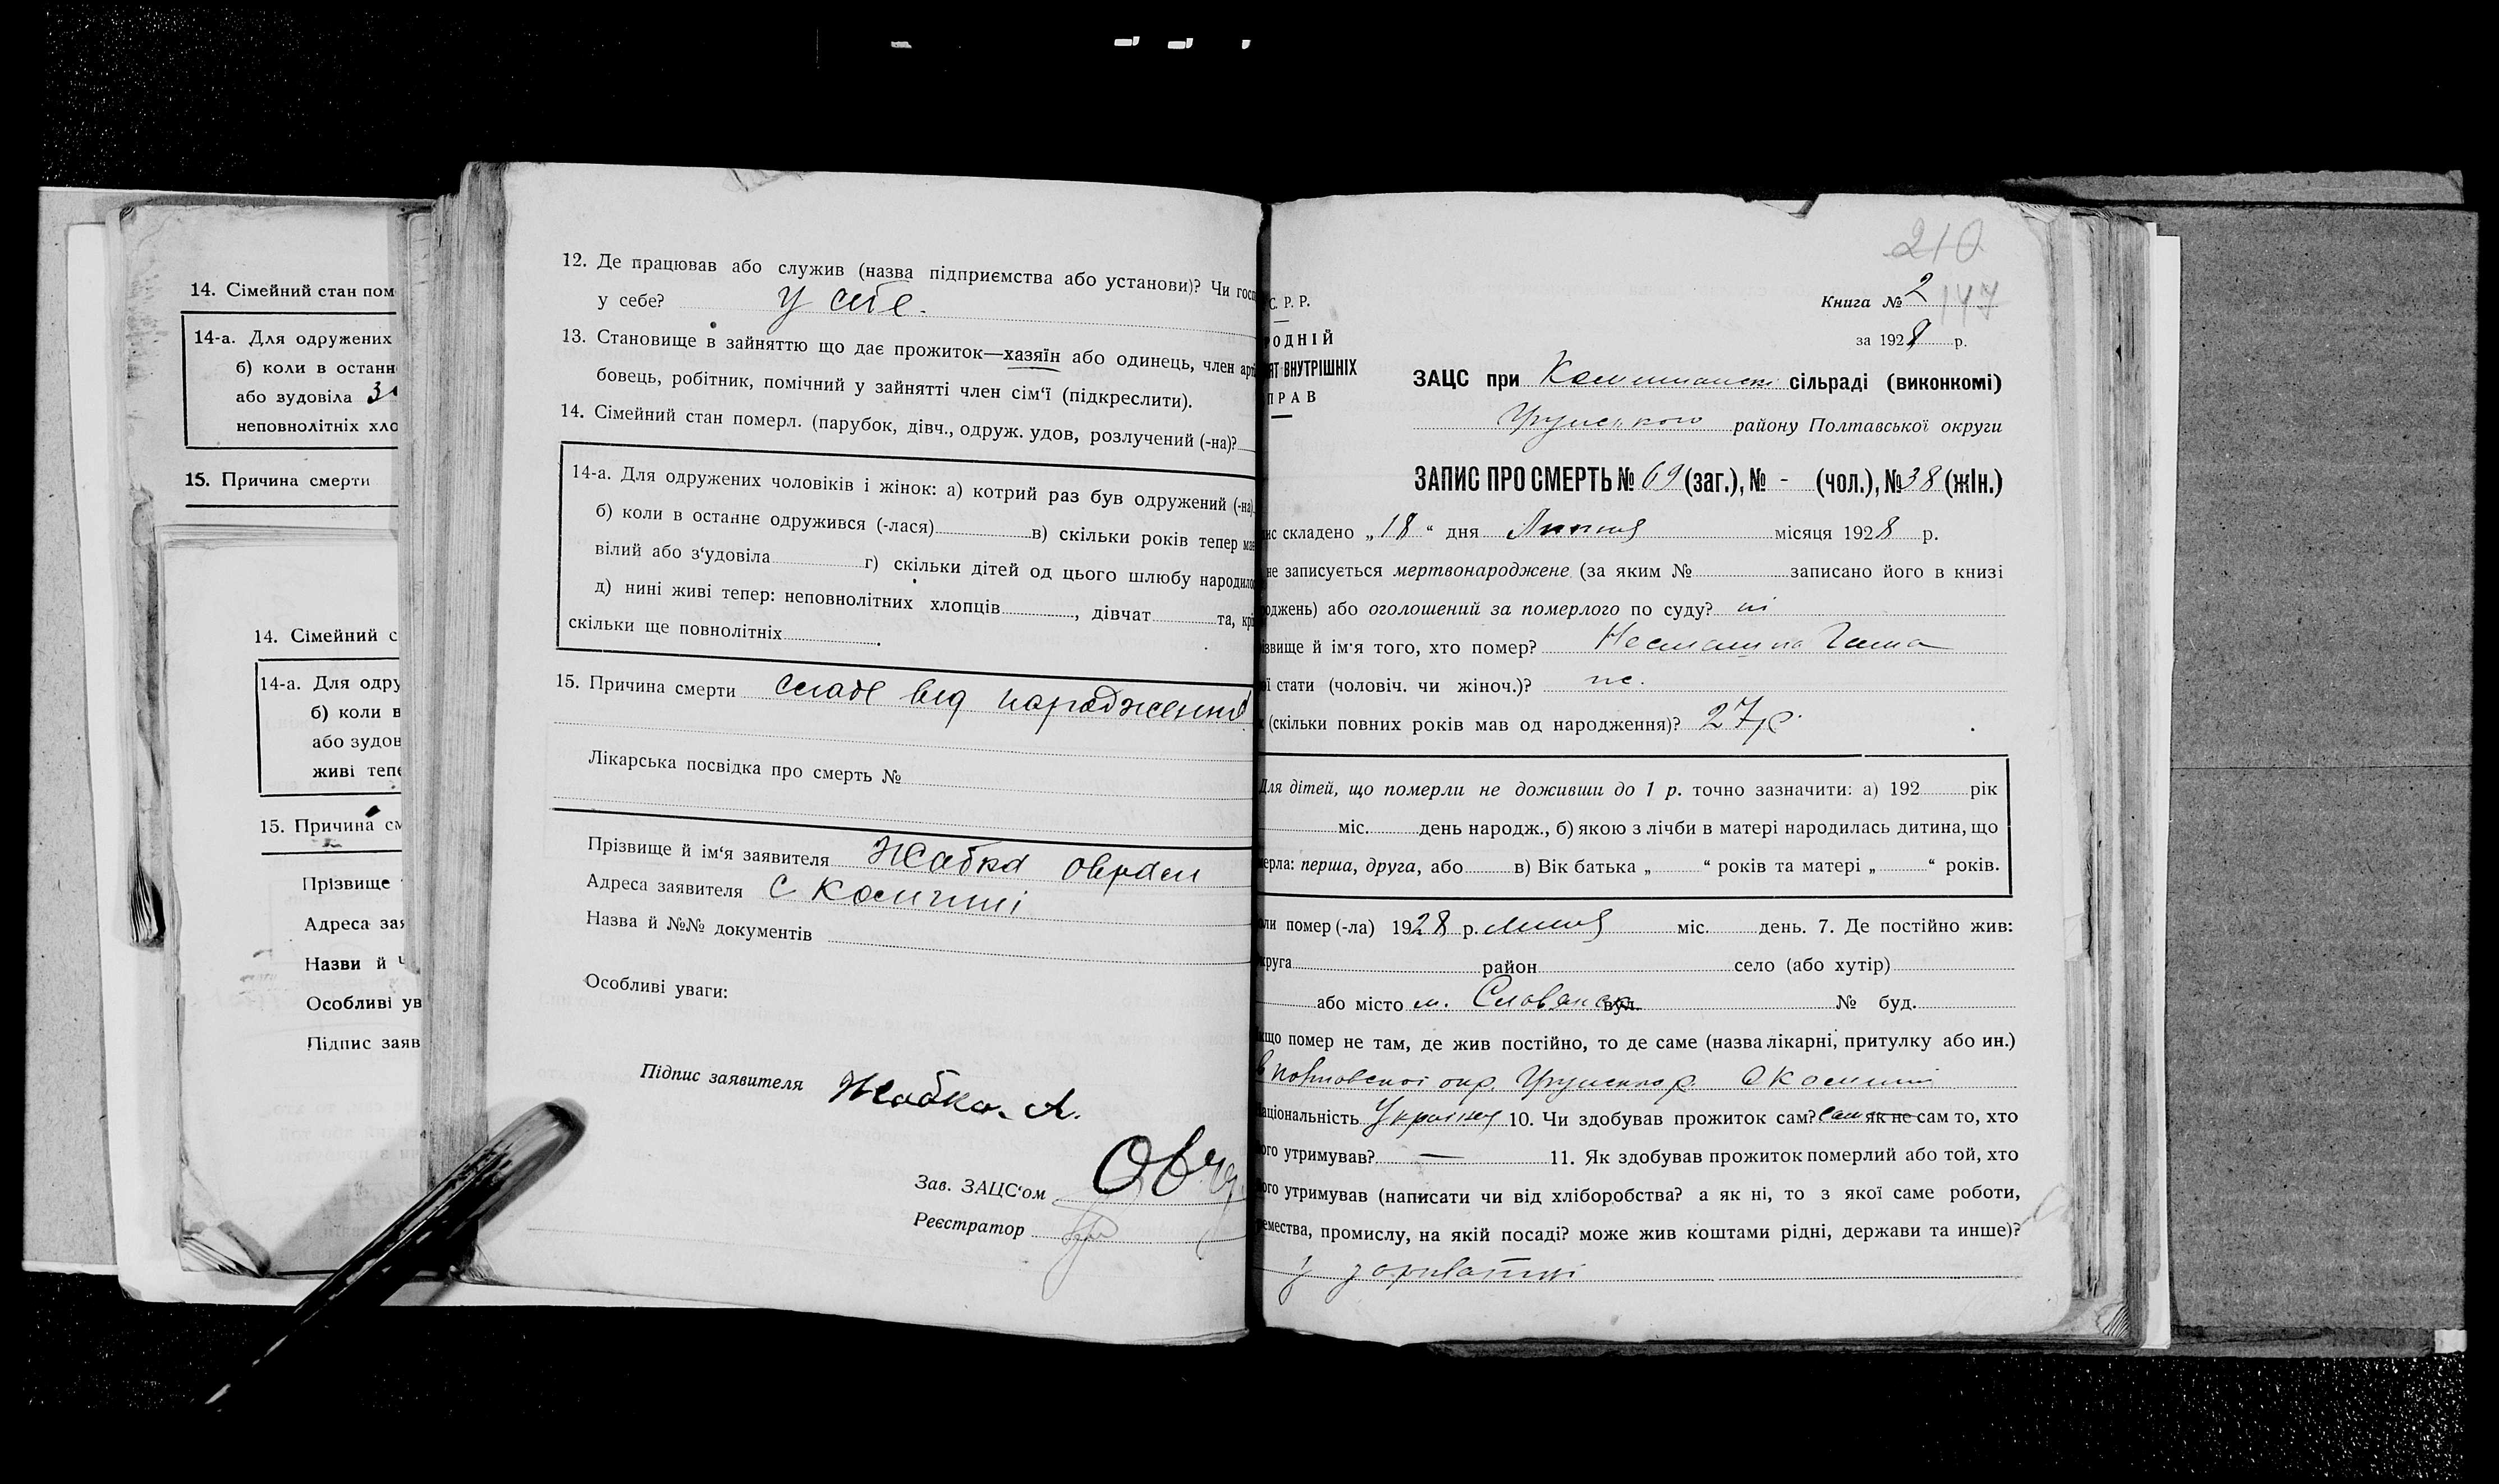 14. Сімейний стан пом
14-а. Для одружених
б) коли в останн
або зудовіла
неповнолітніх хло
15. Причина смерти
14. Сімейний с
14-а. Для одру
б) коли в
або зудов
живі тепе
15. Причина см
Прізвище
Адреса зая
Назви й
Особливі ув
Підпис заяв
12. Де працював або служив (назва підприємства або установи)? Чи госп
у себе? У себе.
13. Становище в зайняттю що дає прожиток—хазяїн або одинець, член арті
бовець, робітник, помічний у зайнятті член сім'ї (підкреслити).
14. Сімейний стан померл. (парубок, дівч., одруж. удов, розлучений (-на)?
14-а. Для одружених чоловіків і жінок: а) котрий раз був одружений (-на)
б) коли в останнє одружився (-лася) в) скільки років тепер має
вілий або з'удовіла г) скільки дітей од цього шлюбу народило
д) нині живі тепер: неповнолітних хлопців, дівчат та, крі
скільки ще повнолітніх.
15. Причина смерти від народження
Лікарська посвідка про смерть №
Прізвище й ім'я заявителя Жабка
Адреса заявителя с
Назва й №№ документів
Особливі уваги:
Підпис заявителя Жабка А.
Зав. ЗАЦС'ом
Реєстратор
210
С. Р. Р.
Книга № 2 147
РОДНІЙ
за 1928 р.
ЯТ ВНУТРІШНІХ
ПРАВ
ЗАЦС при сільраді (виконкомі)
району Полтавської округи
ЗАПИС ПРО СМЕРТЬ № 69 (заг.), № - (чол.), № 38 (жін.)
ис складено „18“ дня Липня місяця 1928 р.
не записується мертвонароджене (за яким № записано його в книзі
роджень) або оголошений за померлого по суду? ні
ізвище й ім'я того, хто помер?
ої стати (чоловіч. чи жіноч.)?
к (скільки повних років мав од народження)? 27 р.
Для дітей, що померли не доживши до 1 р. точно зазначити: а) 192 рік
міс. день народж., б) якою з лічби в матері народилась дитина, що
мерла: перша, друга, або в) Вік батька „ “ років та матері „ “ років.
оли помер (-ла) 1928 р. міс. день. 7. Де постійно жив:
круга район село (або хутір)
або місто м. Словянск вул. № буд.
кщо помер не там, де жив постійно, то де саме (назва лікарні, притулку або ин.)
окр. р.
аціональність 10. Чи здобував прожиток сам? сам як не сам то, хто
ого утримував? — 11. Як здобував прожиток померлий або той, хто
ого утримував (написати чи від хліборобства? а як ні, то з якої саме роботи,
емества, промислу, на якій посаді? може жив коштами рідні, держави та инше)?